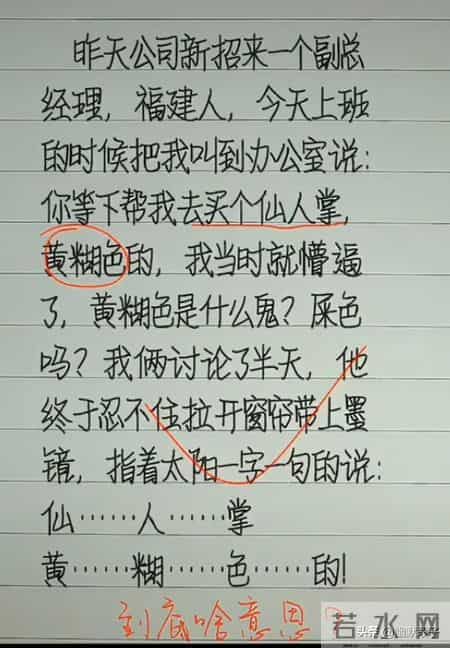 昨天公司新招来一个副总
经理，福建人，今天上班
的时候把我叫到办公室说：
你等下帮我去买个仙人掌，
黄糊色的，我当时就懵逼
了，黄糊色是什么鬼？屎色
吗？我俩讨论了半天，他
终于忍不住拉开窗帘带上墨
镜，指着太阳一字一句的说：
仙……人……掌
黄……糊……色……的！
到底啥意思？
若水网
头条